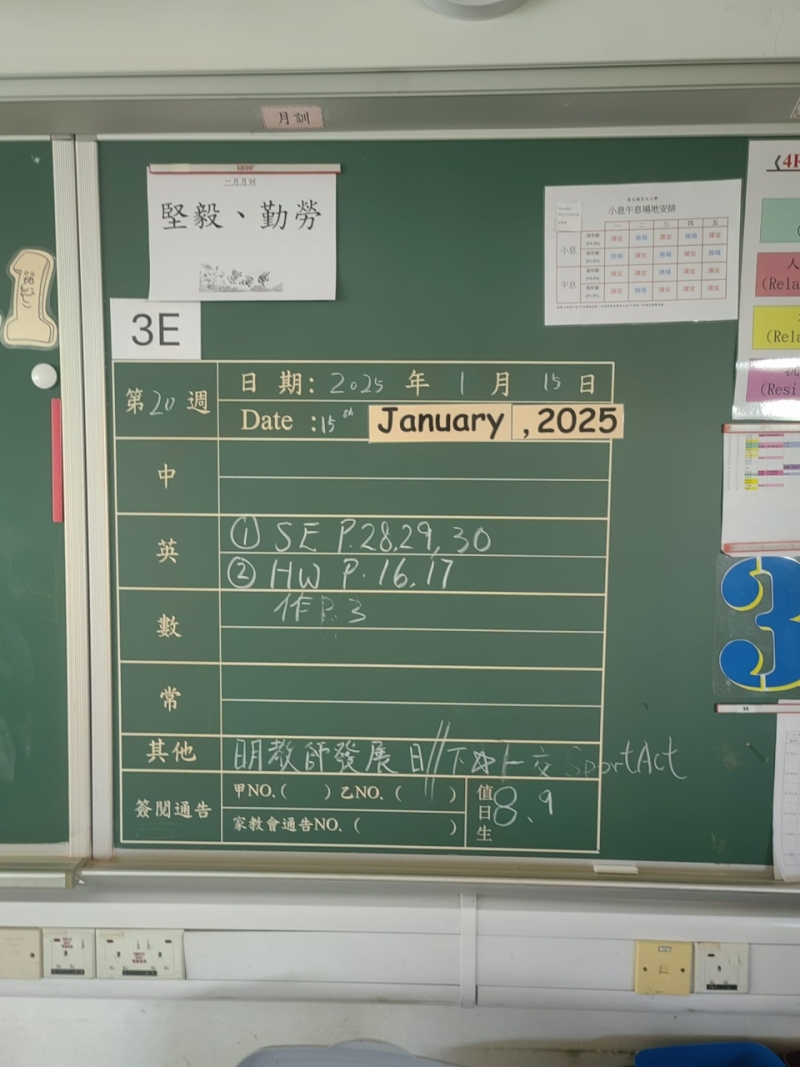 月訓
一月月訓
堅毅、勤勞
小息午息場地安排
一 二 三 四 五
小息
午息
3E
第20週
日期: 2025 年 1 月 15 日
Date :15th January ,2025
中
英
① SE P.28,29,30
② HW P.16,17
數
作P.3
常
其他
明教師發展日//下 交SportAct
簽閱通告
甲NO.( ) 乙NO.( )
家教會通告NO.( )
值日生
8、9
《4R
人
(Rela
(Rela
(Resi
3